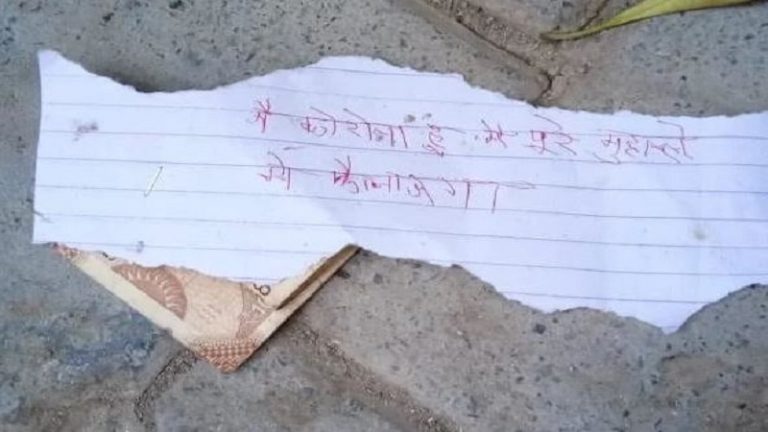 मै कोरोना हु मै पूरे मुहाल्ले
मे फैलाऊगा